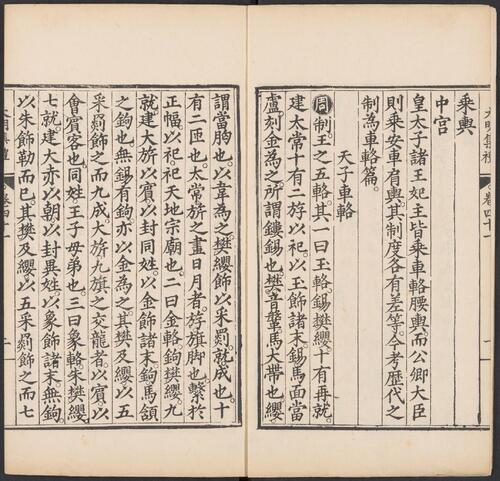 乘輿
中宮
皇太子諸王妃主皆乘車輅腰輿。而公卿大臣
則乘安車肩輿。其制度各有差等。今考歷代之
制為車輅篇。
天子車輅
周制。王之五輅。其一曰玉輅。錫樊纓。十有再就。
建太常。十有二斿以祀。以玉飾諸末。錫馬面當
盧。刻金為之。所謂鏤錫也。樊音鞶。馬大帶也。纓
謂當胸也。以韋為之。樊纓飾以采罽。就成也。十
有二匝也。太常旂之畫日月者。斿旗脚也。繫於
正幅。以祀。祀天地宗廟也。二曰金輅。鉤樊纓九
就。建大旂以賓。以封同姓。以金飾諸末。鉤馬頷
之鉤也。無錫有鉤。亦以金為之。其樊及纓以五
采罽飾之。而九成。大旂九旗之交龍者。以賓以
會賓客也。同姓王子母弟也。三曰象輅。朱樊纓
七就。建大赤以朝。以封異姓。以象飾諸末。無鉤
以朱飾勒而已。其樊及纓以五采罽飾之而七
大明集禮
卷四十一
一
二